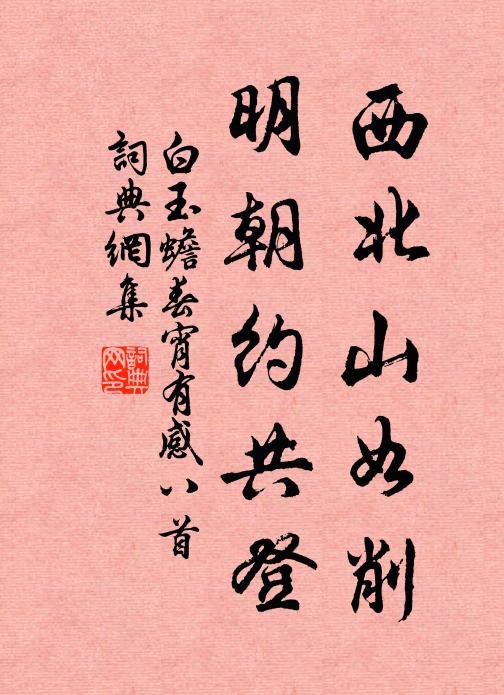 西北山如削
明朝約共登
白玉蟾春宵有感八首
詞典網集
詞典網印